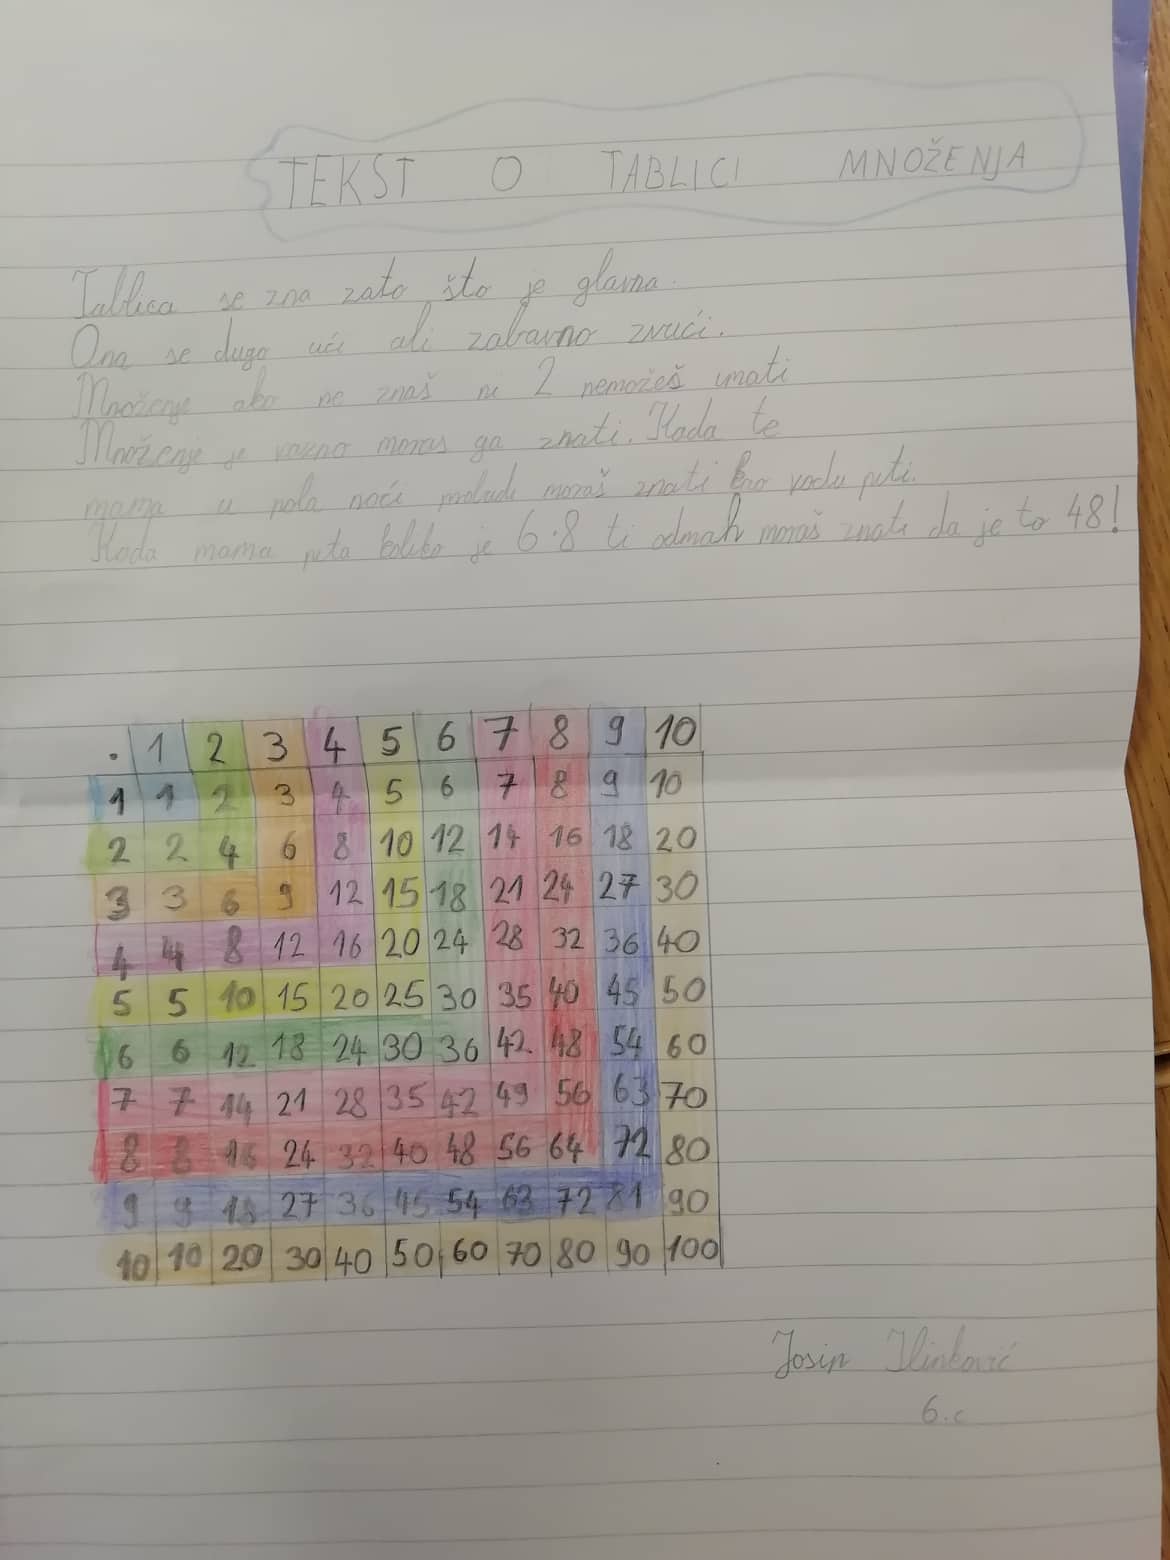 TEKST O TABLICI MNOŽENJA
Tablica se zna zato što je glavna.
Ona se dugo uči ali zabavno zvuči.
Množenje ako ne znaš ni 2 nemožeš imati
Množenje je vazno moraš ga znati. Kada te
mama u pola noći probudi moraš znati ko vodu piti.
Kada mama pita koliko je 6·8 ti odmah moraš znati da je to 48!
· 1 2 3 4 5 6 7 8 9 10
1 1 2 3 4 5 6 7 8 9 10
2 2 4 6 8 10 12 14 16 18 20
3 3 6 9 12 15 18 21 24 27 30
4 4 8 12 16 20 24 28 32 36 40
5 5 10 15 20 25 30 35 40 45 50
6 6 12 18 24 30 36 42 48 54 60
7 7 14 21 28 35 42 49 56 63 70
8 8 16 24 32 40 48 56 64 72 80
9 9 18 27 36 45 54 63 72 81 90
10 10 20 30 40 50 60 70 80 90 100
Josip
6.c